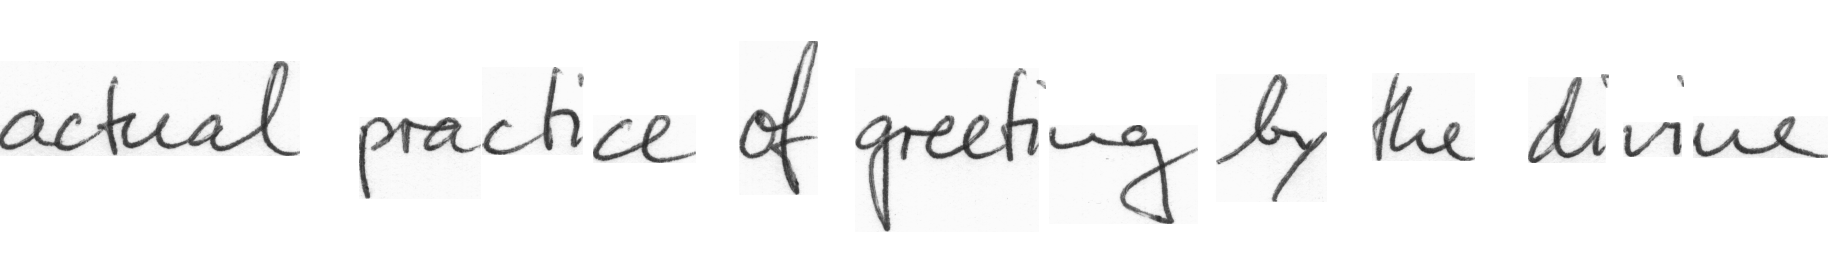 actual practice of greeting by the divine